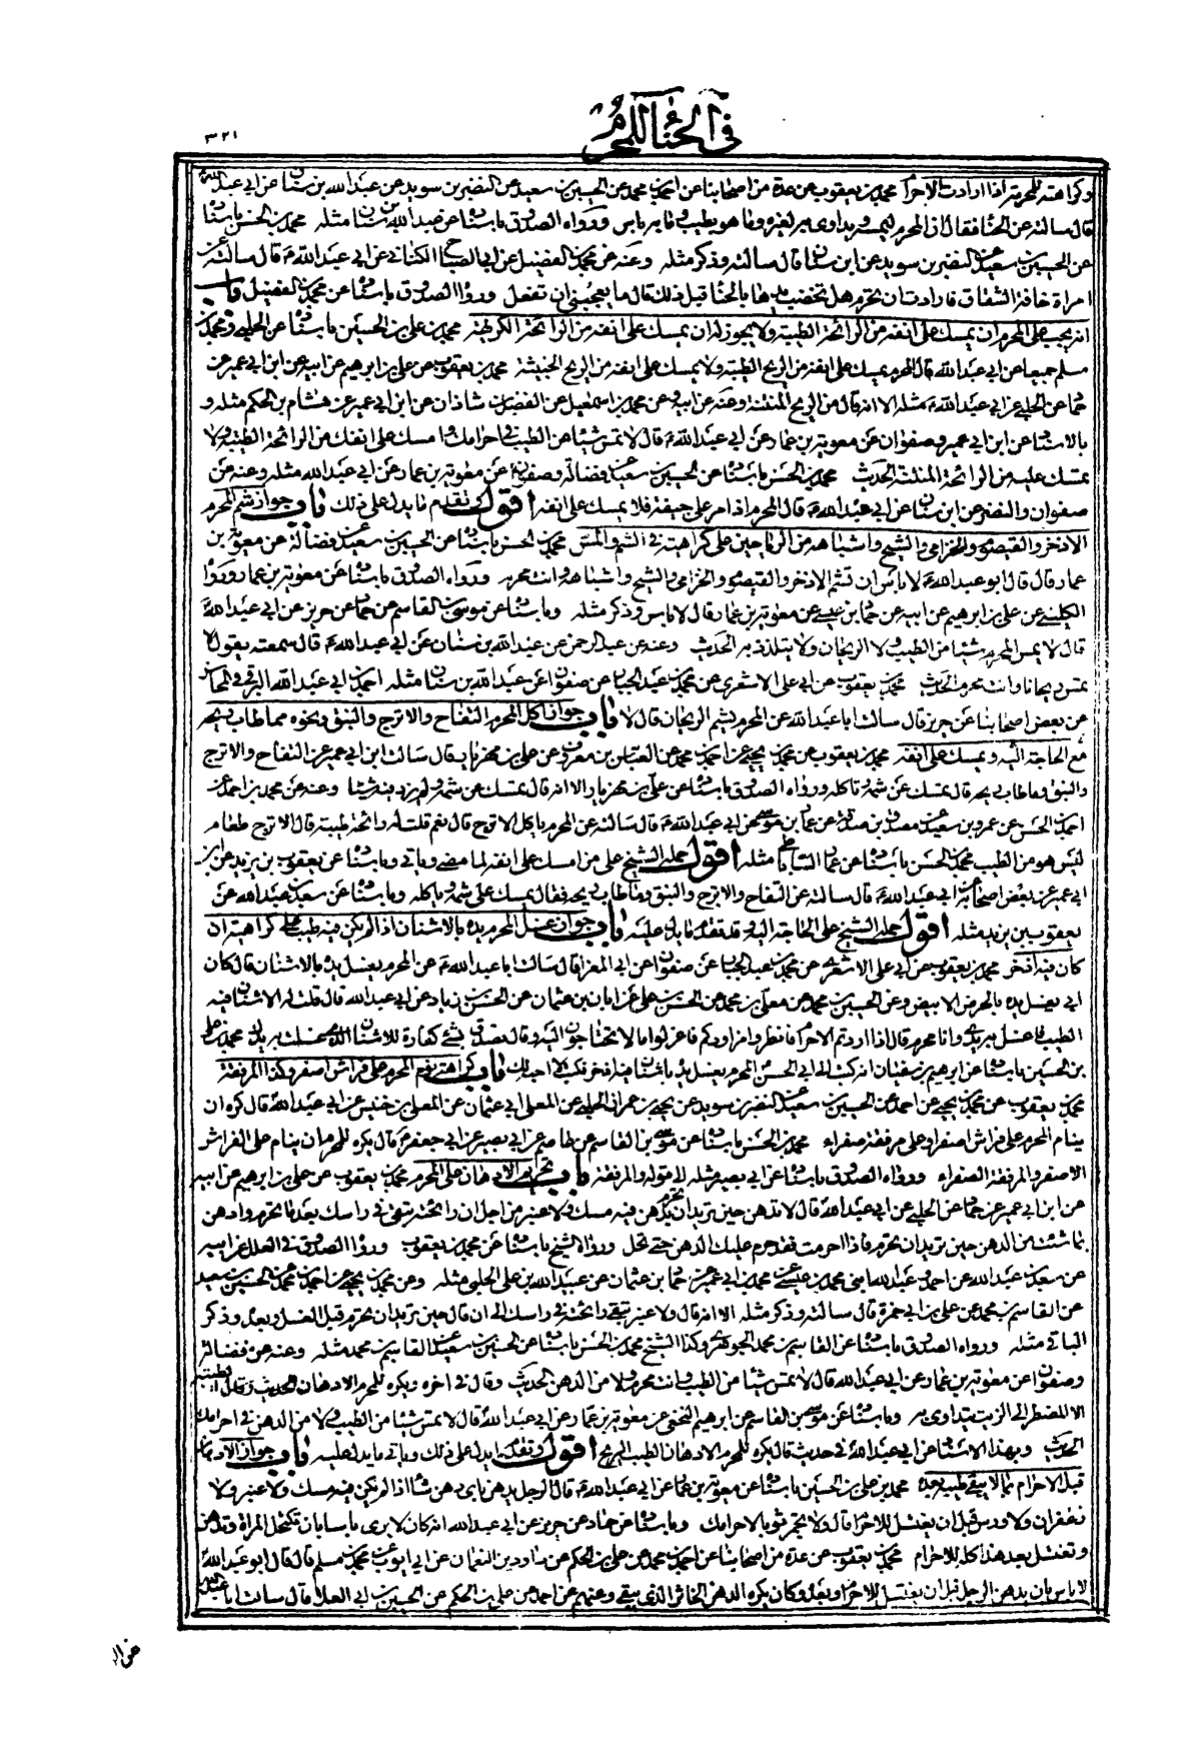 في الحناء للمحرم
٣٢١
وكراهته للمحرمة اذا ارادت الاحرام محمد بن يعقوب عن عدة من اصحابنا عن احمد بن محمد عن الحسين بن سعيد عن النضر بن سويد عن عبد الله بن سنان عن ابي عبد الله
قال سالته عن الحنا فقال ان المحرم ليمسه ويداوى به بعيره وما هو بطيب وما به باس ورواه الصدوق باسناده عن عبد الله بن سنان مثله محمد بن الحسن باسناده
عن الحسين بن سعيد عن النضر بن سويد عن ابن سنان قال سالته وذكر مثله وعنه عن محمد بن الفضيل عن ابي الصباح الكناني عن ابي عبد الله ع قال سالته عن
امراة خافت الشقاق فارادت ان تحرم هل تخضب يدها بالحنا قبل ذلك قال ما يعجبني ان تفعل ورواه الصدوق باسناده عن محمد بن الفضيل باب
انه يجب على المحرم ان يمسك على انفه من الرائحة الطيبة ولا يجوز له ان يمسك على انفه من الرائحة الكريهة محمد بن علي بن الحسين باسناده عن الحلبي ومحمد بن
مسلم جميعا عن ابي عبد الله قال المحرم يمسك على انفه من الريح الطيبة ولا يمسك على انفه من الريح الخبيثة محمد بن يعقوب عن علي بن ابرهيم عن ابيه عن ابن ابي عمير عن
حماد عن الحلبي عن ابي عبد الله ع مثله الا انه قال من الريح المنتنة وعنه عن ابيه وعن محمد بن اسمعيل عن الفضل بن شاذان عن ابن ابي عمير عن هشام بن الحكم مثله و
بالاسناد عن ابن ابي عمير وصفوان عن معوية بن عمار عن ابي عبد الله ع قال لا تمس شيئا من الطيب في احرامك وامسك على انفك من الرائحة الطيبة ولا
تمسك عليه من الرائحة المنتنة الحديث محمد بن الحسن باسناده عن الحسين بن سعيد عن فضالة وصفوان عن معوية بن عمار عن ابي عبد الله مثله وعنه عن
صفوان والنضر عن ابن سنان عن ابي عبد الله ع قال المحرم اذا مر على جيفة فلا يمسك على انفه اقول وتقدم ما يدل على ذلك باب جواز شم المحرم
الاذخر والقيصوم والخزامى والشيح واشباهه من الرياحين على كراهية في الشم والمس محمد بن الحسن باسناده عن الحسين بن سعيد عن فضالة عن معوية بن
عمار قال قال ابو عبد الله ع لا باس ان تشم الاذخر والقيصوم والخزامى والشيح واشباهه وانت محرم ورواه الصدوق باسناده عن معوية بن عمار ورواه
الكليني عن علي بن ابرهيم عن ابيه عن حماد بن عيسى عن معوية بن عمار قال لا باس وذكر مثله وباسناده عن موسى بن القاسم عن حماد عن حريز عن ابي عبد الله
قال لا يمس المحرم شيئا من الطيب ولا الريحان ولا يتلذذ به الحديث وعنه عن عبد الرحمن عن عبد الله بن سنان عن ابي عبد الله ع قال سمعته يقول لا
تمس ريحانا وانت محرم الحديث محمد بن يعقوب عن ابي علي الاشعري عن محمد بن عبد الجبار عن صفوان عن عبد الله بن سنان مثله احمد بن ابي عبد الله البرقي في المحاسن
عن بعض اصحابنا عن حريز قال سالت ابا عبد الله عن المحرم يشم الريحان قال لا باب جواز اكل المحرم التفاح والاترج والنبق ونحوه مما طاب ريحه
مع الحاجة اليه ويمسك على انفه محمد بن يعقوب عن محمد بن يحيى عن احمد بن محمد عن العباس بن معروف عن علي بن مهزيار قال سالت ابن ابي عمير عن التفاح والاترج
والنبق وما طاب ريحه قال تمسك عن شمه وتاكله ورواه الصدوق باسناده عن علي بن مهزيار الا انه قال تمسك عن شمه ولم يزد فيه شيئا وعنه عن محمد بن احمد عن
احمد بن الحسن عن عمرو بن سعيد عن مصدق بن صدقة عن عمار بن موسى عن ابي عبد الله ع قال سالته عن المحرم ياكل الاترج قال نعم قلت له رائحة طيبة قال الاترج طعام
ليس هو من الطيب محمد بن الحسن باسناده عن عمار الساباطي مثله اقول حمله الشيخ على من امسك على انفه لما مضى وياتي وباسناده عن يعقوب بن يزيد عن ابن
ابي عمير عن بعض اصحابه عن ابي عبد الله ع قال سالته عن التفاح والاترج والنبق وما طاب ريحه فقال يمسك على شمه وياكله وباسناده عن سعد بن عبد الله عن
يعقوب بن يزيد مثله اقول حمله الشيخ على الحاجة اليه وقد تقدم ما يدل عليه باب جواز غسل المحرم يده بالاشنان اذا لم يكن فيه طيب على كراهية ان
كان فيه اذخر محمد بن يعقوب عن ابي علي الاشعري عن محمد بن عبد الجبار عن صفوان عن ابي المغرا قال سالت ابا عبد الله ع عن المحرم يغسل يده بالاشنان قال كان
ابي يغسل يده بالحرض الابيض وعن الحسين بن محمد عن معلى بن محمد عن الحسن بن علي عن ابان بن عثمان عن الحسن بن زياد عن ابي عبد الله قال قلت له الاشنان فيه
الطيب اغسل به يدي وانا محرم قال اذا اردتم الاحرام فانظروا مزاودكم فاعزلوا ما لا تحتاجون اليه وقال تصدق بشيء كفارة للاشنان الذي غسلت به يدك محمد بن علي
بن الحسين باسناده عن ابرهيم بن سفيان انه كتب الى ابي الحسن المحرم يغسل يده باشنان فيه اذخر فكتب لا احبه لك باب كراهة نوم المحرم على فراش اصفر وكذا المرفقة
محمد بن يعقوب عن محمد بن يحيى عن احمد عن الحسين بن سعيد عن النضر بن سويد عن يحيى بن عمران الحلبي عن المعلى ابي عثمان عن المعلى بن خنيس عن ابي عبد الله قال كره ان
ينام المحرم على فراش اصفر او على مرفقة صفراء محمد بن الحسن باسناده عن موسى بن القاسم عن عاصم عن ابي بصير عن ابي جعفر ع قال يكره للمحرم ان ينام على الفراش
الاصفر والمرفقة الصفراء ورواه الصدوق باسناده عن ابي بصير مثله الا قوله والمرفقة باب تحريم الادهان على المحرم محمد بن يعقوب عن علي بن ابرهيم عن ابيه
عن ابن ابي عمير عن حماد عن الحلبي عن ابي عبد الله قال لا تدهن حين تريد ان تحرم بدهن فيه مسك ولا عنبر من اجل ان رائحته تبقى في راسك بعد ما تحرم وادهن
بما شئت من الدهن حين تريد ان تحرم فاذا احرمت فقد حرم عليك الدهن حتى تحل ورواه الشيخ باسناده عن محمد بن يعقوب ورواه الصدوق في العلل عن ابيه
عن سعد بن عبد الله عن احمد وعبد الله ابني محمد بن عيسى عن محمد بن ابي عمير عن حماد بن عثمان عن عبيد الله بن علي الحلبي مثله وعن محمد بن يحيى عن احمد بن محمد عن الحسين بن سعيد
عن القاسم بن محمد عن علي بن ابي حمزة قال سالته وذكر مثله الا انه قال ولا عنبر تبقى رائحته في راسك الى ان قال حين تريد ان تحرم قبل الغسل وبعده وذكر
الباقي مثله ورواه الصدوق باسناده عن القاسم بن محمد الجوهري وكذا الشيخ محمد بن الحسن باسناده عن الحسين بن سعيد عن القاسم بن محمد مثله وعنه عن فضالة
وصفوان عن معوية بن عمار عن ابي عبد الله قال لا تمس شيئا من الطيب وانت محرم ولا من الدهن الحديث وقال في اخره ويكره للمحرم الادهان الطيبة
الا المضطر الى الزيت يتداوى به وباسناده عن موسى بن القاسم عن ابرهيم النخعي عن معوية بن عمار عن ابي عبد الله قال لا تمس شيئا من الطيب ولا من الدهن في احرامك
الحديث وبهذا الاسناد عن ابي عبد الله في حديث قال يكره للمحرم الادهان الطيبة الريح اقول وتقدم ما يدل على ذلك وياتي ما يدل عليه باب جواز الادهان
قبل الاحرام بما لا يبقى طيبه بعده محمد بن علي بن الحسين باسناده عن معوية بن عمار عن ابي عبد الله ع قال الرجل يدهن باي دهن شاء اذا لم يكن فيه مسك ولا عنبر ولا
زعفران ولا ورس قبل ان يغتسل للاحرام قال ولا تجمر ثوبا لاحرامك وباسناده عن حماد عن حريز عن ابي عبد الله انه كان لا يرى باسا بان تكتحل المراة وتدهن
وتغتسل بعد هذا كله للاحرام محمد بن يعقوب عن عدة من اصحابنا عن احمد بن محمد عن علي بن الحكم عن داود بن النعمان عن ابي ايوب عن محمد بن مسلم قال قال ابو عبد الله
لا باس بان يدهن الرجل قبل ان يغتسل للاحرام وبعده وكان يكره الدهن الخاثر الذي يبقى وعنهم عن احمد عن علي بن الحكم عن الحسين بن ابي العلا قال سالت ابا عبد الله
عن الر